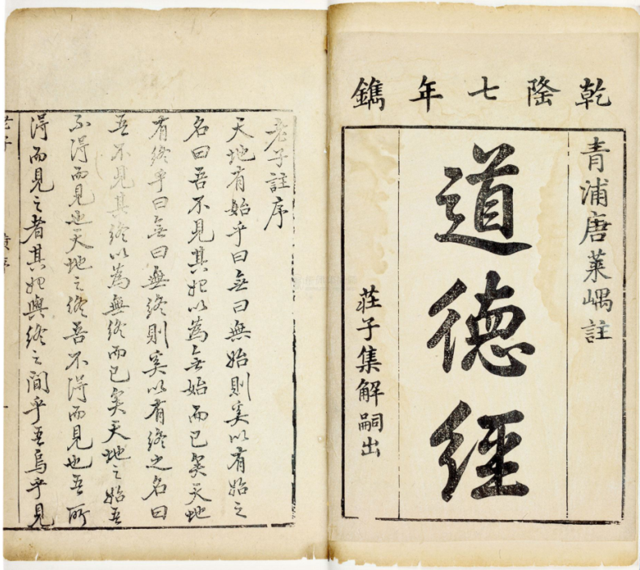 乾隆七年鐫
青浦唐萊嵎註
道德經
莊子集解嗣出
老子註序
天地有始乎曰無曰無始則奚以有始之
名曰吾不見其始以為無始而已矣天地
有終乎曰無曰無終則奚以有終之名曰
吾不見其終以為無終而已矣天地之始吾
不得而見也天地之終吾不得而見也吾所
得而見之者其始與終之間乎吾烏乎見
老子